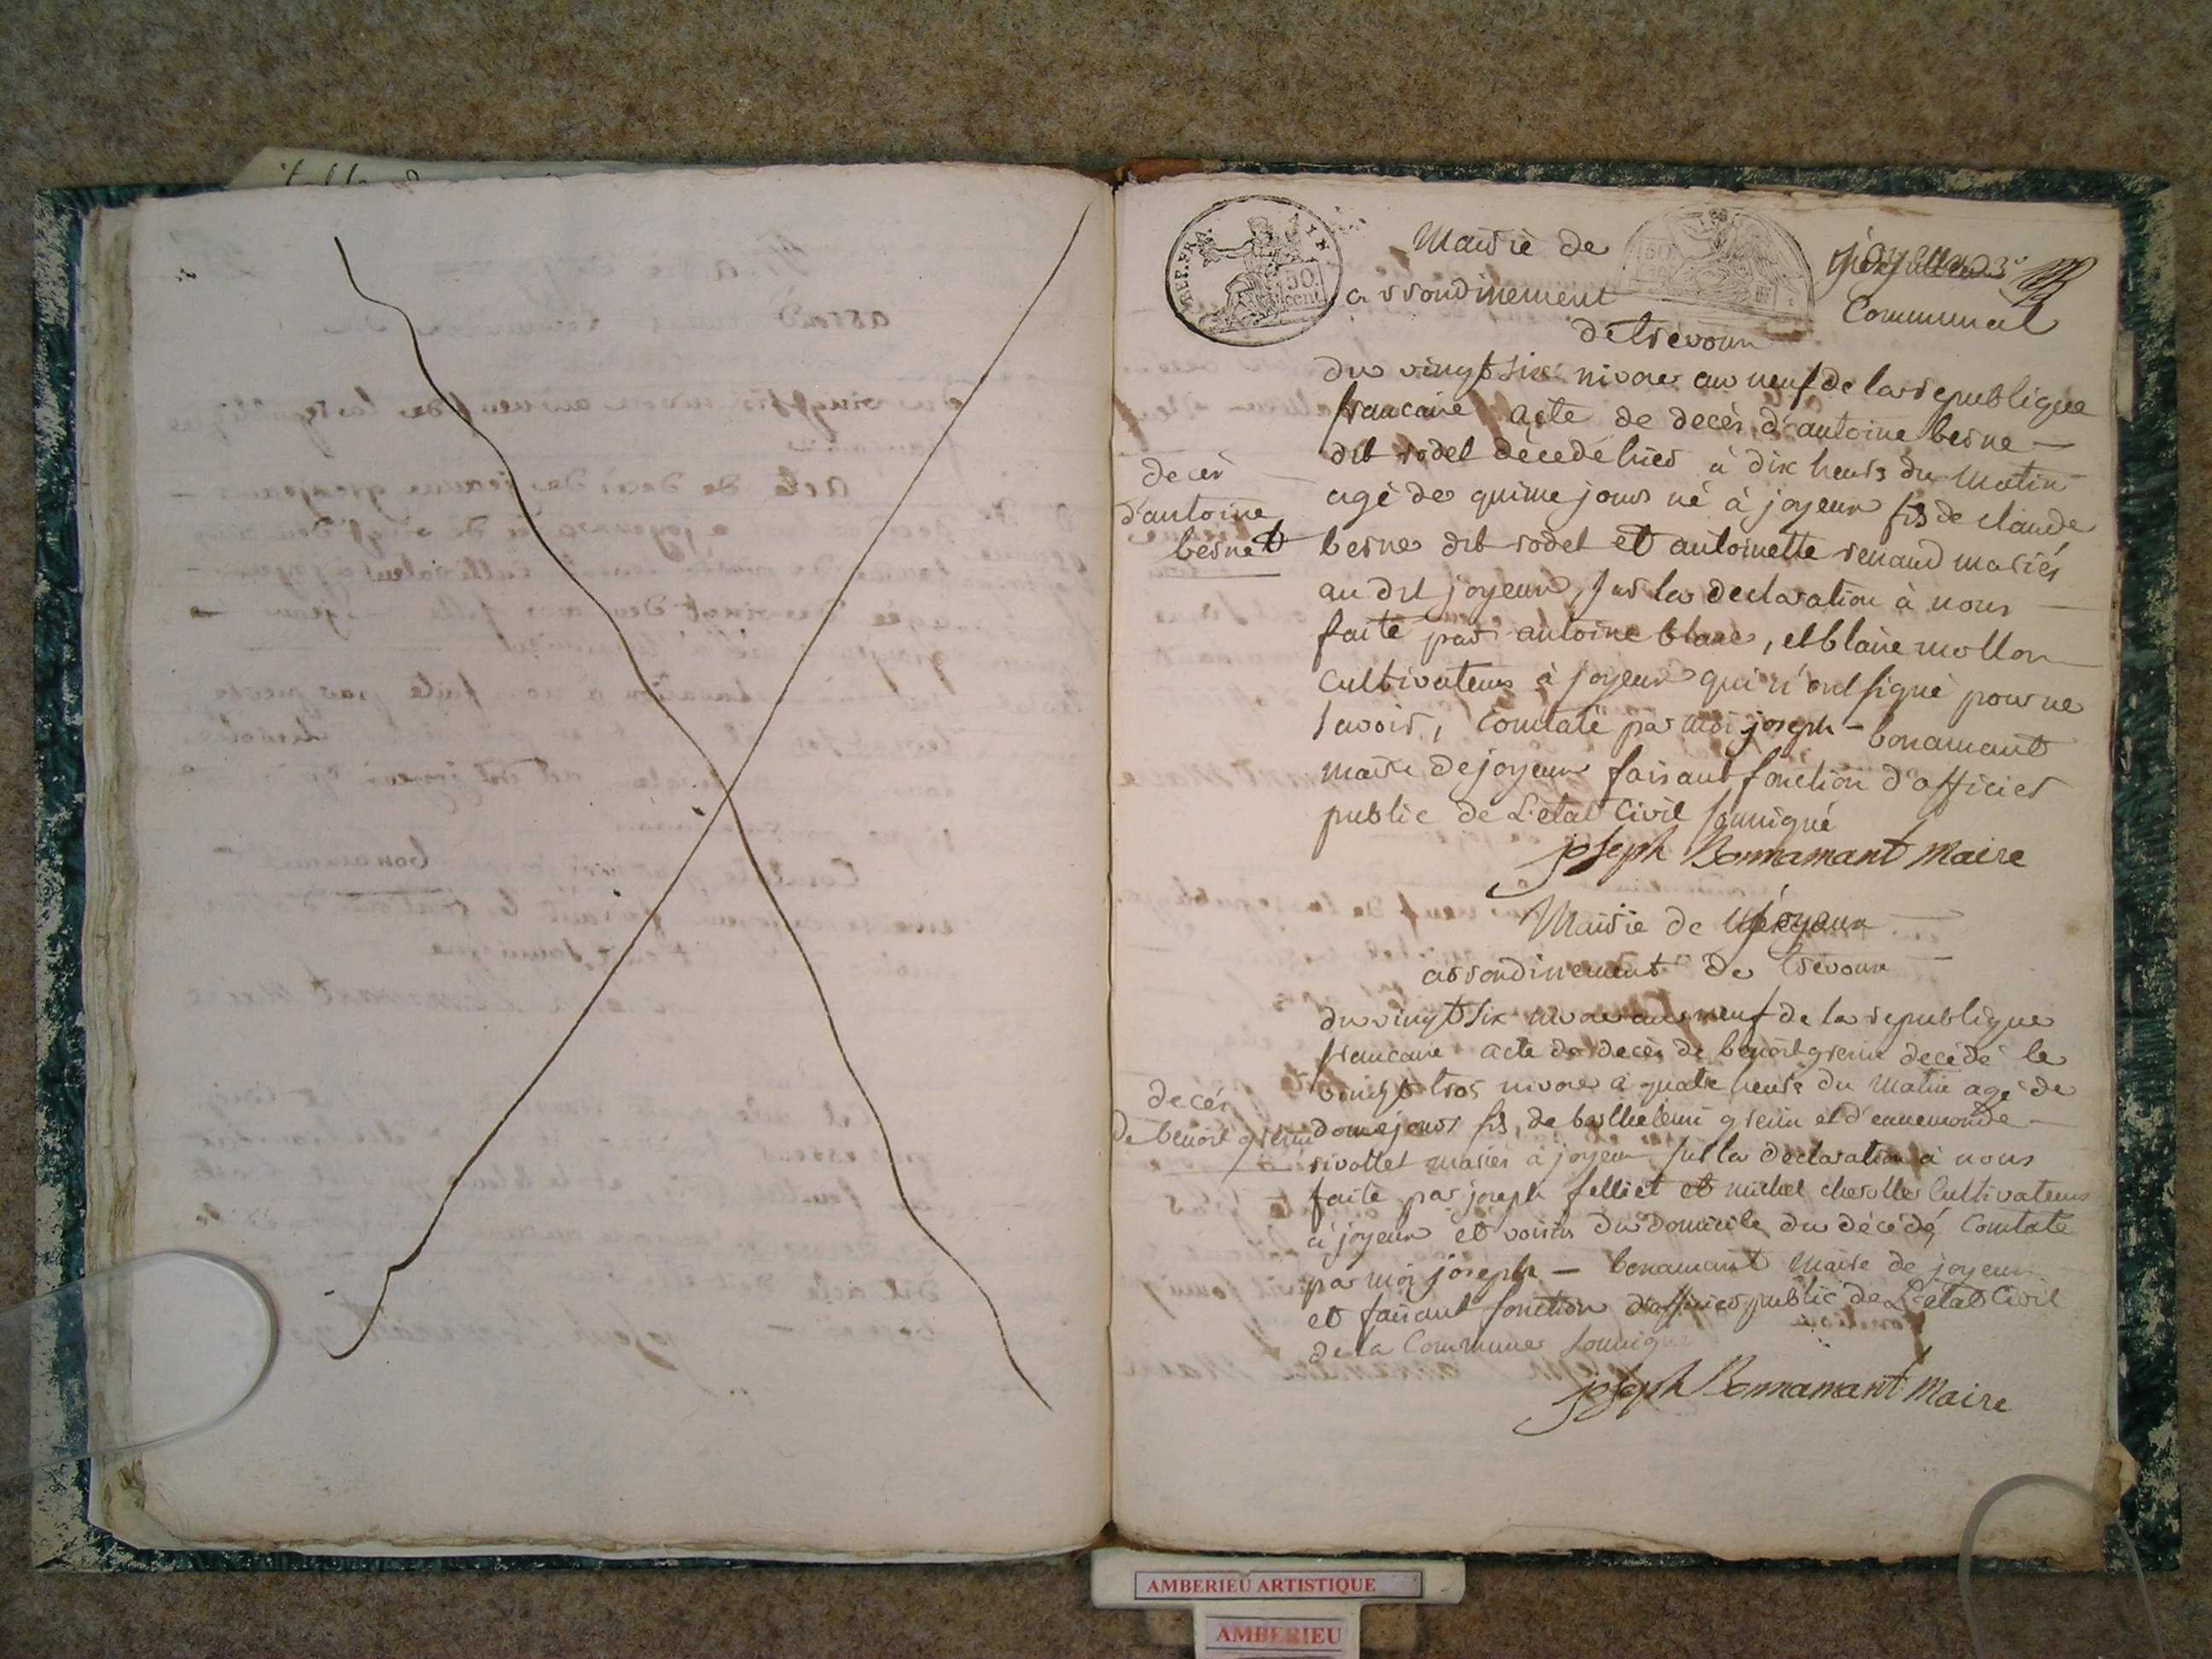 REP. FRA.
50
cent
Mairie de
arrondinement
Communal
de trevoux
du vingt six nivose an neuf de la republique
francaise acte de decès d'antoine besne
dit rodet décedé hier à dix heurs du matin
agé de quinze jours né à joyeux fis de claude
besne dit rodet et antoinette renaud mariés
au dit joyeux, sur la declaration à nous
faite par antoine blanc, et blaise mollon
cultivateurs à joyeux qui n'ont signé pour ne
savoir, Constaté par moi joseph - bonamant
maire de joyeux faisant fonction d'officier
public de L'etat Civil soussigné
joseph Bonnamant Maire
decès
d'antoine
besnet
Mairie de joyeux
arrondinement de trevoux
du vingt six nivose an neuf de la republique
francaise acte de decès de benoit grenin decédé le
vingt trois nivose à quatre heurs du matin agé de
douze jours fis, de barthelemi grenin et d'ennemonde
rivollet mariés à joyeux sur la declaration à nous
faite par joseph felliet et michel cherolles Cultivateurs
à joyeux et voisins du domicile du décédé, Constaté
par moi joseph - bonamant Maire de joyeux
et faisant fonction d'officier public de L'etat Civil
de la Commune soussigné
joseph Bonnamant Maire
decés
de benoit grenin
AMBERIEU ARTISTIQUE
AMBERIEU